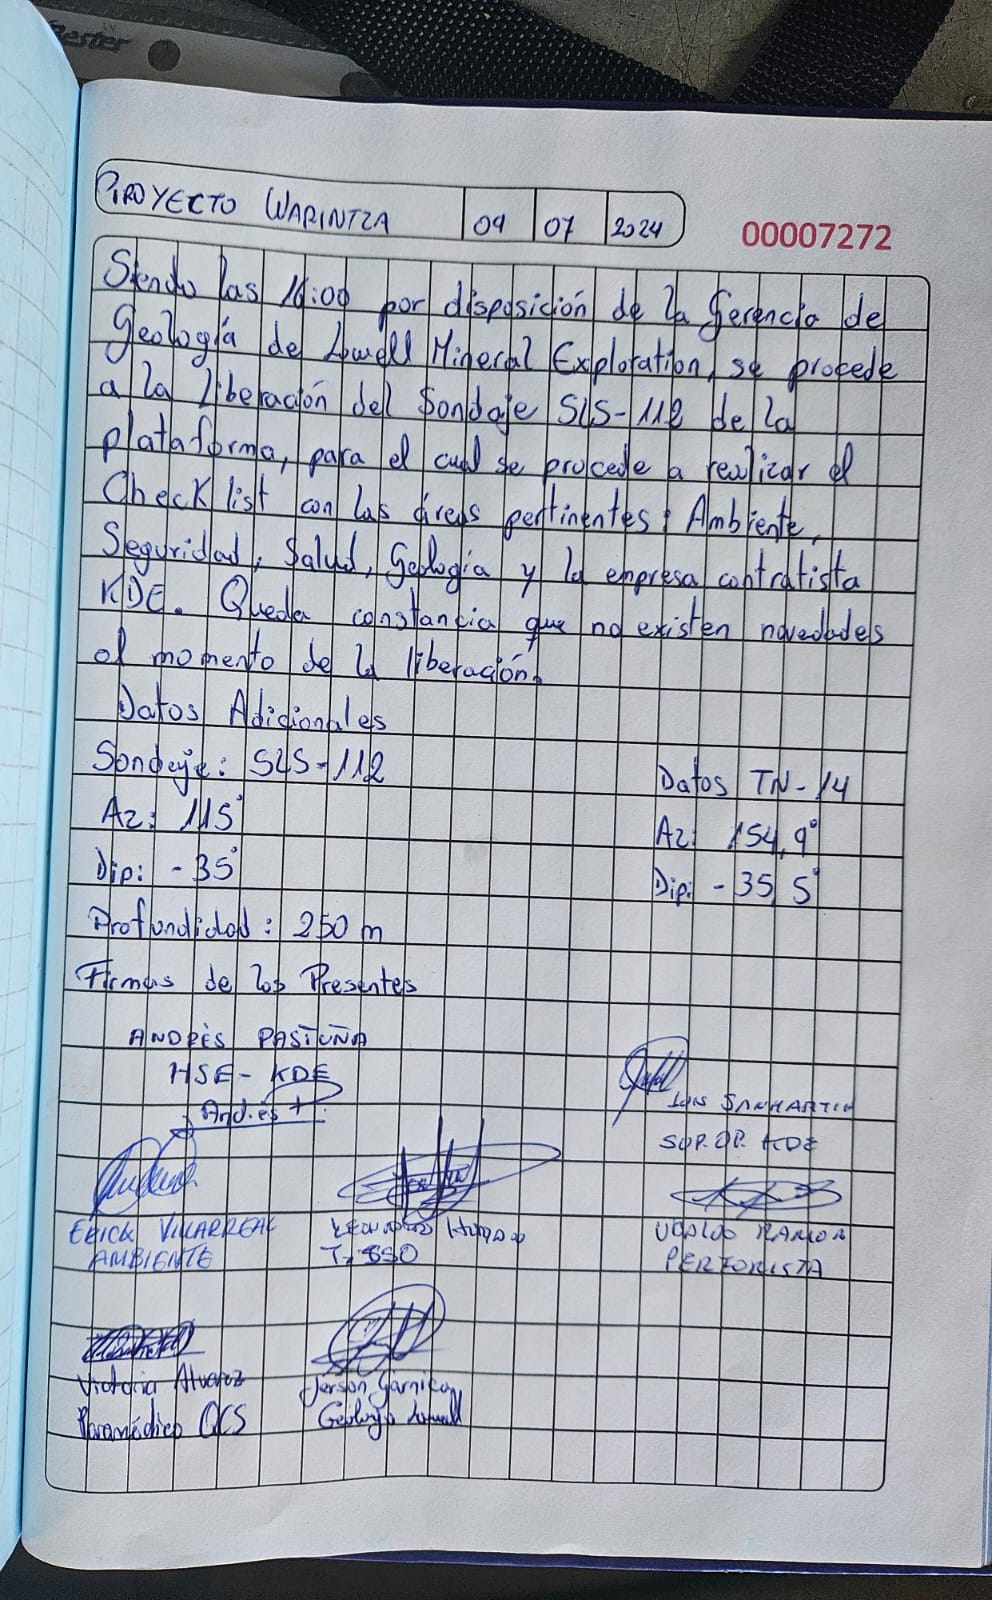 Bester
PROYECTO WARINTZA 04 07 2024
00007272
Siendo las 16:00 por disposición de la Gerencia de
Geología de Lowell Mineral Exploration, se procede
a la liberación del Sondaje SLS-112 de la
plataforma, para el cual se procede a realizar el
Check list con las áreas pertinentes: Ambiente,
Seguridad, Salud, Geología y la empresa contratista
KDE. Queda constancia que no existen novedades
al momento de la liberación.
Datos Adicionales
Sondaje: SLS-112
Az: 115°
Dip: -35°
Profundidad: 250 m
Datos TN-14
Az: 154,9°
Dip: -35,5°
Firmas de los Presentes
ANDRÈS PASTUÑA
HSE-KDE
Andrés
LUIS SANMARTIN
SUP. OP. KDE
ERICK VILLARREAL
AMBIENTE
Hurtado
T. SSO
UBALDO RAMON
PERFORISTA
Victoria Alvarez
Paramédico QCS
Jerson Garnica
Geólogo Lowell